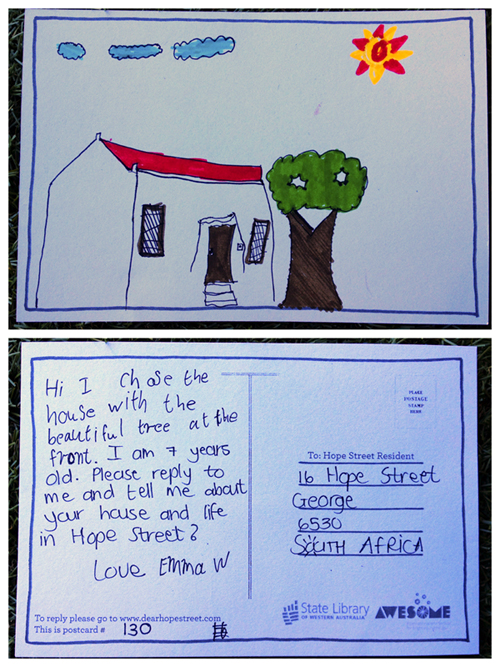 Hi I Chose the
house with the
beautiful tree at the
front. I am 7 years
old. Please reply to
me and tell me about
your house and life
in Hope Street?
Love Emma W
To reply please go to www.dearhopestreet.com
This is postcard # 130
PLACE
POSTAGE
STAMP
HERE
To: Hope Street Resident
16 Hope Street
George
6530
SOUTH AFRICA
State Library
OF WESTERN AUSTRALIA
AWESOME